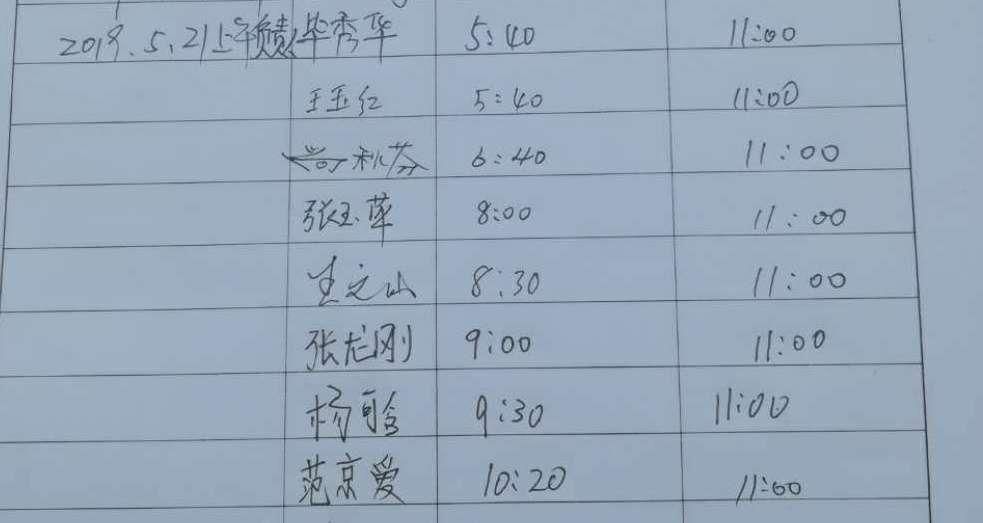 2019.5.21上午 毕秀华 5:40 11:00
王玉红 5:40 11:00
利芬 6:40 11:00
张玉苹 8:00 11:00
王之山 8:30 11:00
张龙刚 9:00 11:00
杨 9:30 11:00
范京爱 10:20 11:00